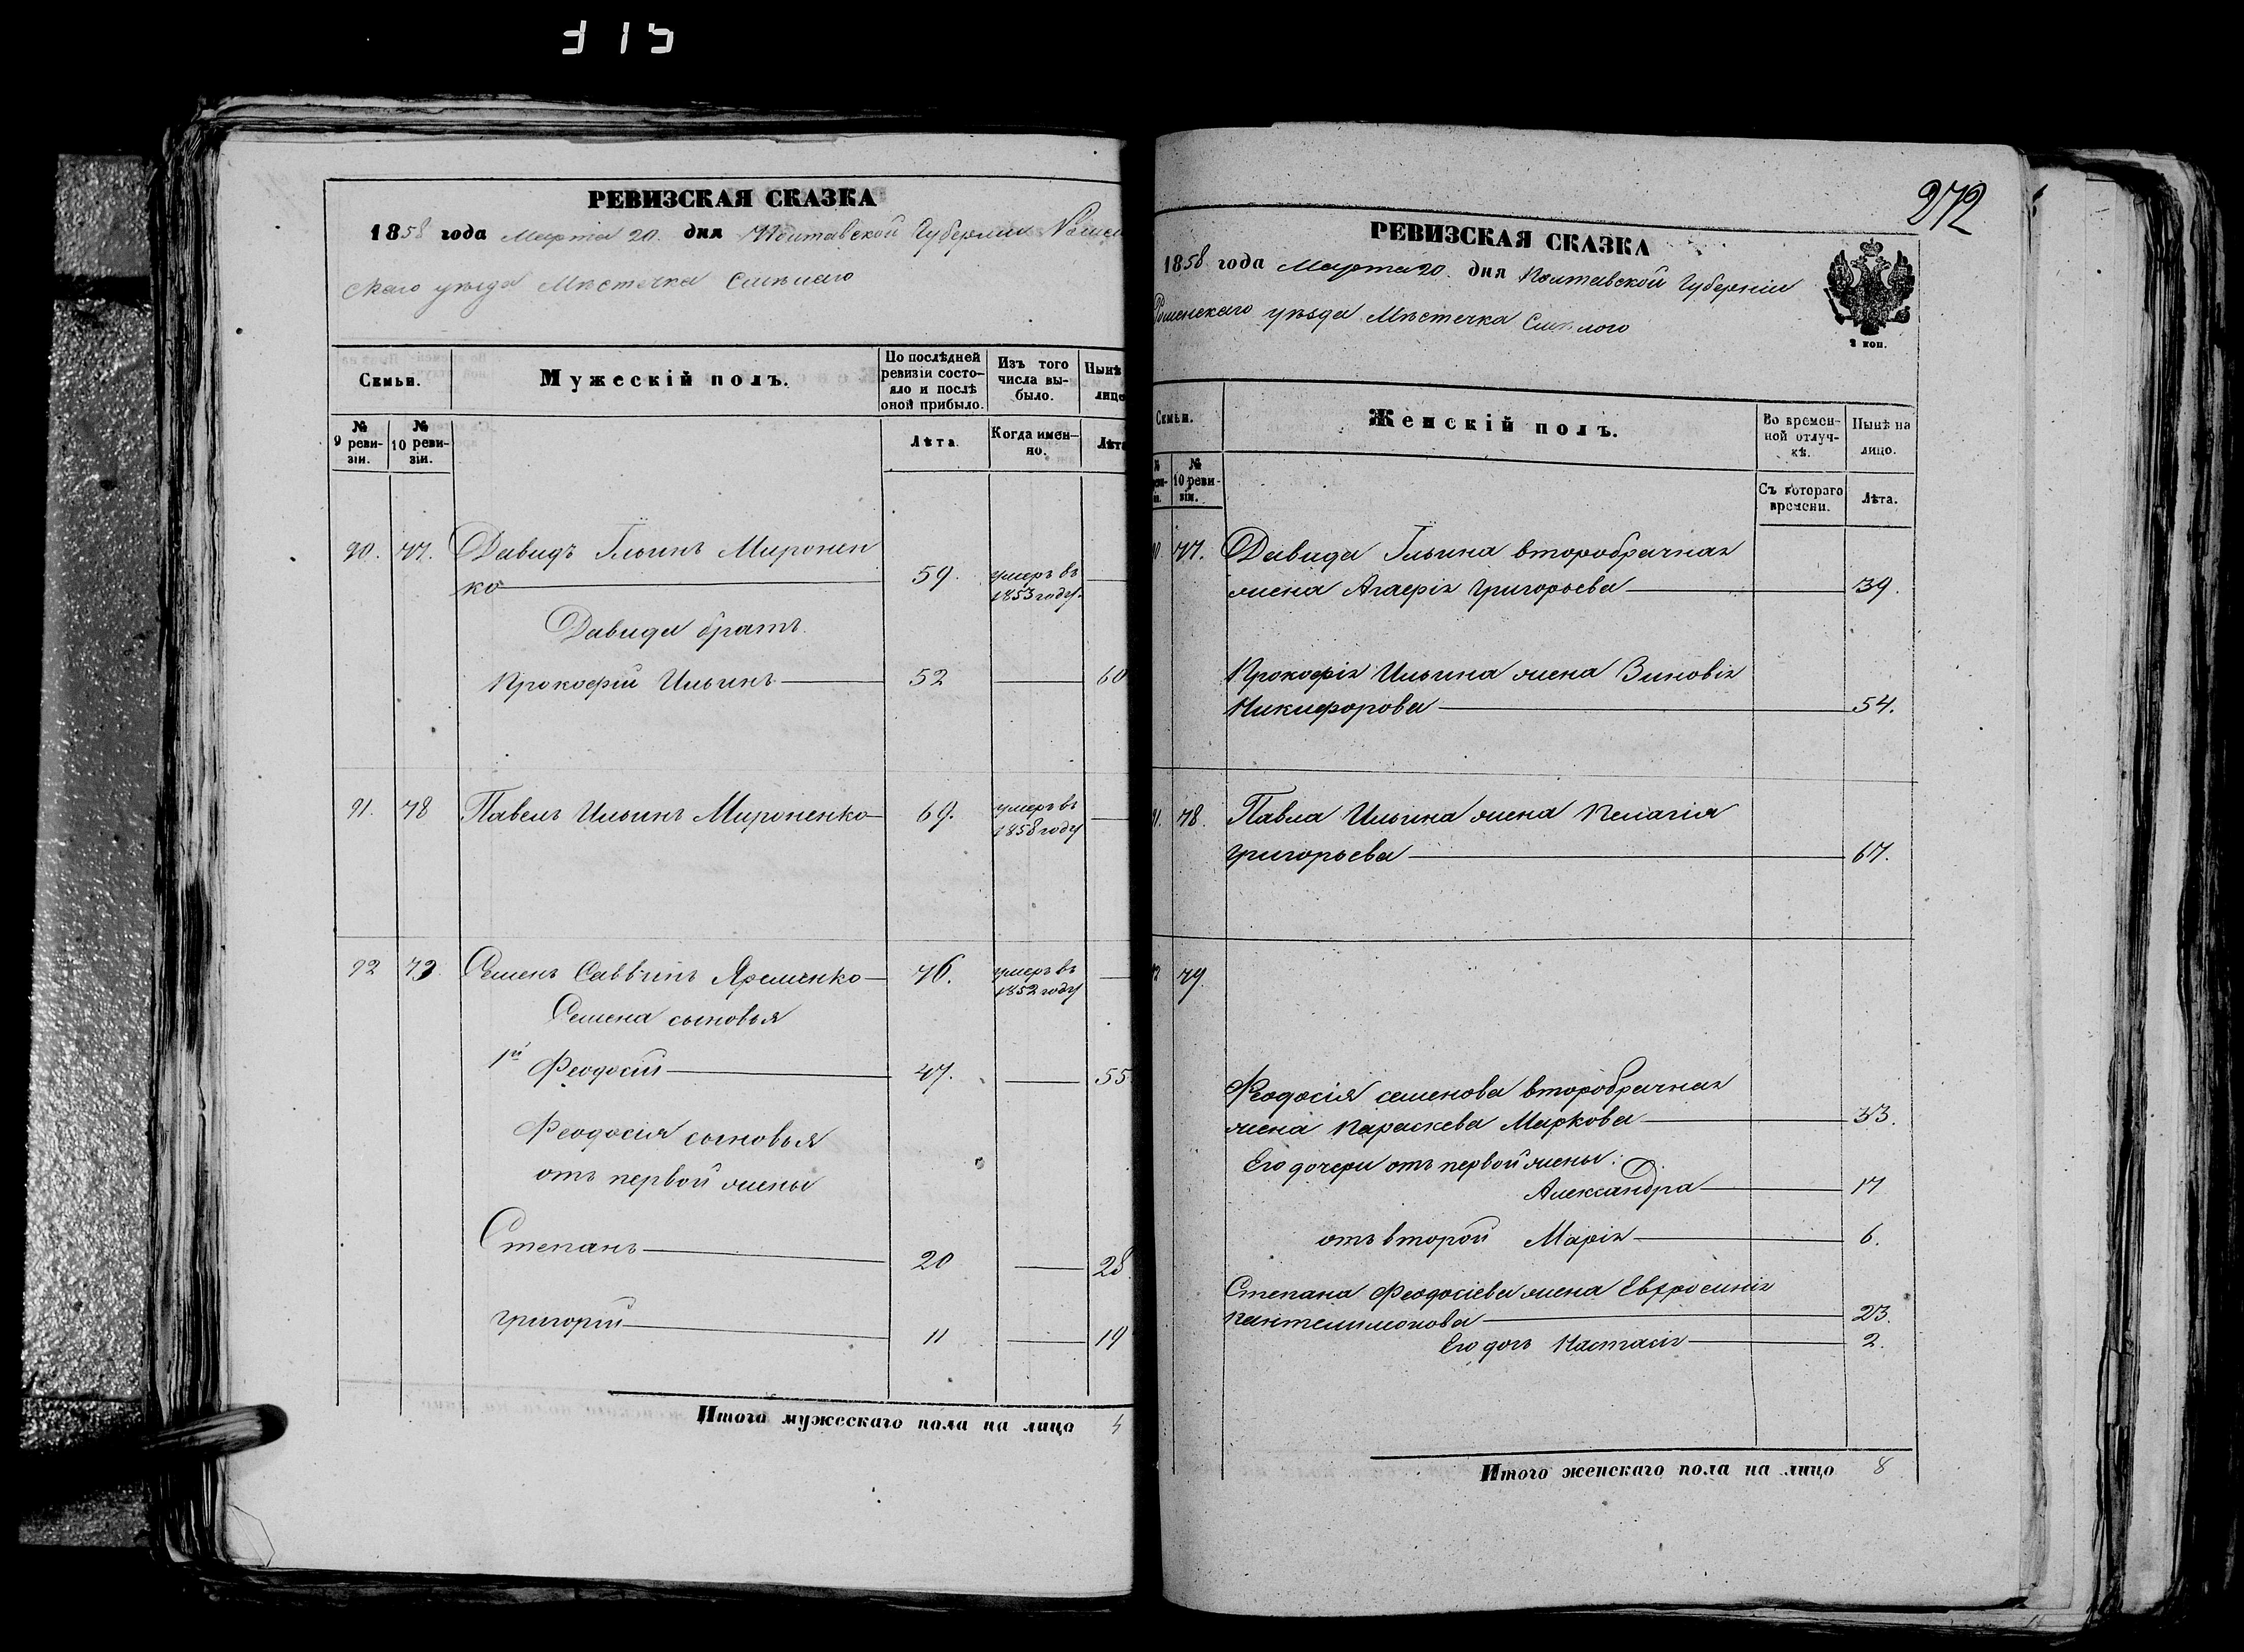 315
РЕВИЗСКАЯ СКАЗКА
1858 года Марта 20. дня Полтавской Губернии Ромен
скаго уѣзда Мѣстечка Смѣлаго
Семьи.
Мужескій полъ.
По послѣдней ревизіи состояло и послѣ оной прибыло.
Изъ того числа выбыло.
Нынѣ
лицо
№ 9 ревизіи.
№ 10 ревизіи.
Лѣта.
Когда именно.
Лѣта
90. 77. Давидъ Ильинъ Миронен
ко 59. умеръ въ 1853 году.
Давида братъ
Прокофій Ильинъ 52 60
91. 78 Павелъ Ильинъ Мироненко 69. умеръ въ 1858 году
92 79. Семенъ Саввинъ Яременко 76. умеръ въ 1852 году
Семена сыновья
1й Феодосій 47. 55
Феодосія сыновья
отъ первой жены
Степанъ 20 28
Григорій 11 19
Итого мужескаго пола на лицо 4
272
РЕВИЗСКАЯ СКАЗКА
1858 года Марта 20. дня Полтавской Губерніи
Роменскаго уѣзда Мѣстечка Смѣлого
2 коп.
Семьи.
Женскій полъ.
Во временной отлучкѣ.
Нынѣ на лицо.
№
№ 10 ревизіи.
Съ котораго времени.
Лѣта.
77. Давида Ильина второбрачная
жена Агафія Григорьева 39.
Прокофія Ильина жена Зиновія
Никифорова 54.
78. Павла Ильина жена Пелагія
Григорьева 67.
79.
Феодосія Семенова второбрачная
жена Параскева Маркова 33.
Его дочери отъ первой жены:
Александра 17
отъ второй Марія 6.
Степана Феодосіева жена Евфросинія
Пантелимонова 23.
Его дочь Настасія 2.
Итого женскаго пола на лицо 8